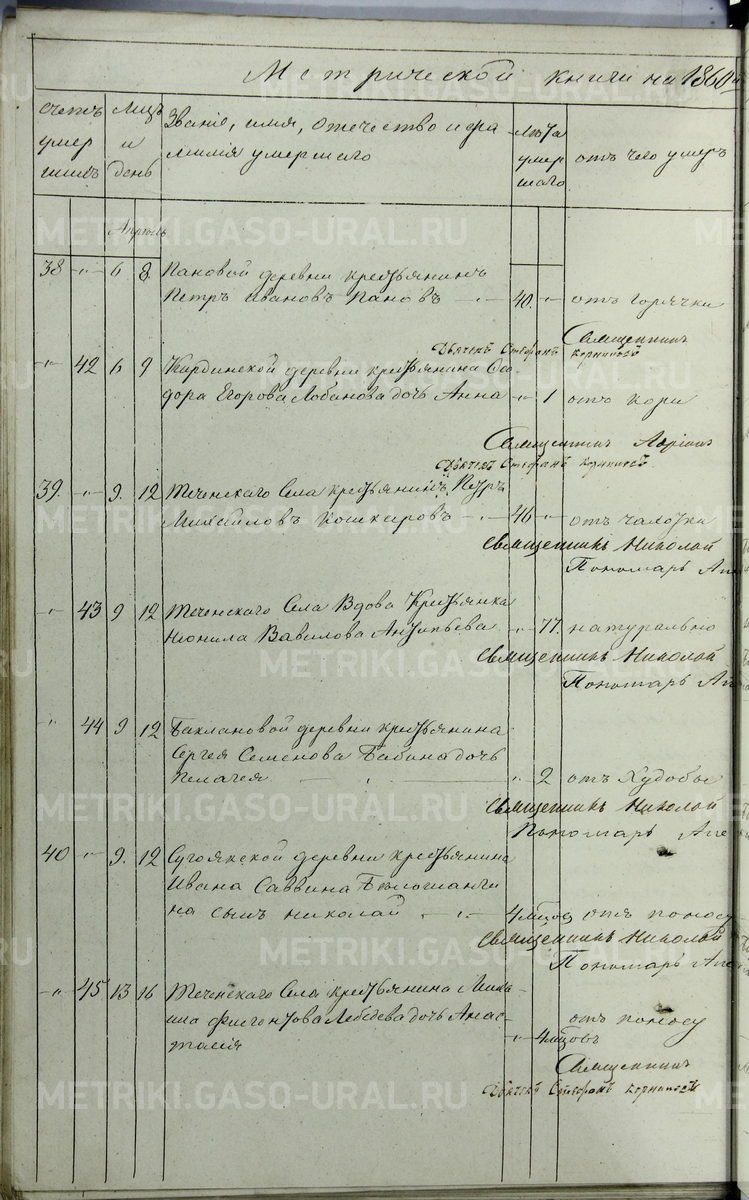 Метрической книги на 1860й
счетъ умер шихъ
Мцъ и день
Званіе, имя, отечество и фа
милія умершаго
Лѣта умер шаго
отъ чего умеръ
Апрѣль
38 " 6 8 Пановой деревни крестьянинъ
Петръ Ивановъ Пановъ 40. " отъ горячки
Священникъ
Дьячекъ Стефанъ
" 42 6 9 деревни крестьянина Ѳео
дора Егорова Лобанова дочь Анна " 1 отъ кори
Священникъ
Дьячекъ Стефанъ
39. " 9. 12 Теченскаго Села крестьянинъ Петръ
Михайловъ Кошкаровъ 46 " отъ чахотки
Священникъ Николай
Пономарь
" 43 9 12 Теченскаго Села Вдова Крестьянка
Неонила Вавилова Антипьева " 77. натурально
Священникъ Николай
Пономарь
" 44 9 12 Баклановой деревни крестьянина
Сергея Семенова Бабина дочь
Пелагея " 2 отъ худобы
Священникъ Николай
Пономарь
40 " 9. 12 Сугоякской деревни крестьянина
Ивана Саввина
на сынъ Николай 4 мцов отъ поносу
Священникъ Николай
Пономарь
" 45 13 16 Теченскаго Села крестьянина
Лебедева дочь Анас
тасія " 4 мцовъ отъ поносу
Священникъ
Дьячекъ Стефанъ
METRIKI.GASO-URAL.RU